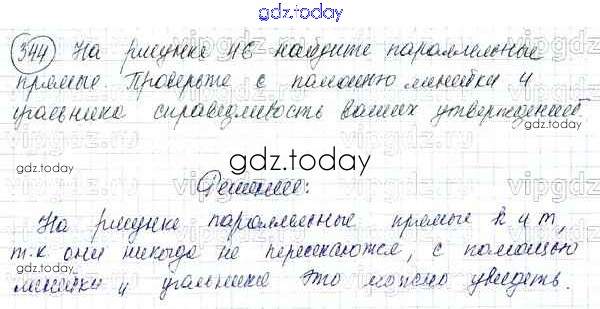 gdz.today
344 На рисунке 46 найдите параллельные
прямые. Проверьте с помощью линейки и
угольника справедливость ваших утверждений.
gdz.today
gdz.today
Решение:
На рисунке параллельные прямые k и m,
т.к они никогда не пересекаются, с помощью
gdz.today
линейки и угольника это можно увидеть.